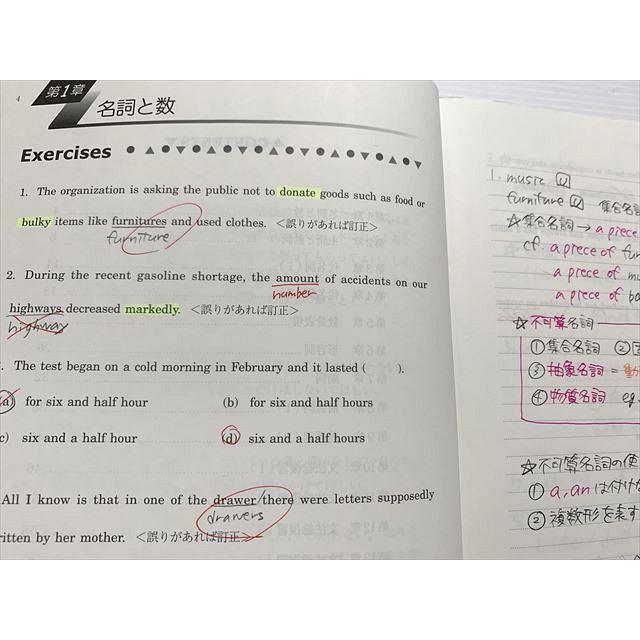 4
第1章
名詞と数
Exercises
1. The organization is asking the public not to donate goods such as food or
bulky items like furnitures and used clothes. <誤りがあれば訂正>
furniture
2. During the recent gasoline shortage, the amount of accidents on our
number
highways decreased markedly. <誤りがあれば訂正>
highway
. The test began on a cold morning in February and it lasted ( ).
(a) for six and half hour
(b) for six and half hours
c) six and a half hour
(d) six and a half hours
All I know is that in one of the drawer there were letters supposedly
drawers
itten by her mother. <誤りがあれば訂正>
1. music U
furniture U 集合名
☆集合名詞 → a piece
cf. a piece of fur
a piece of mu
a piece of ba
☆不可算名詞
① 集合名詞 ②
③ 抽象名詞 = 動
④ 物質名詞 eg.
☆不可算名詞の使
① a, an は付け
② 複数形を表す